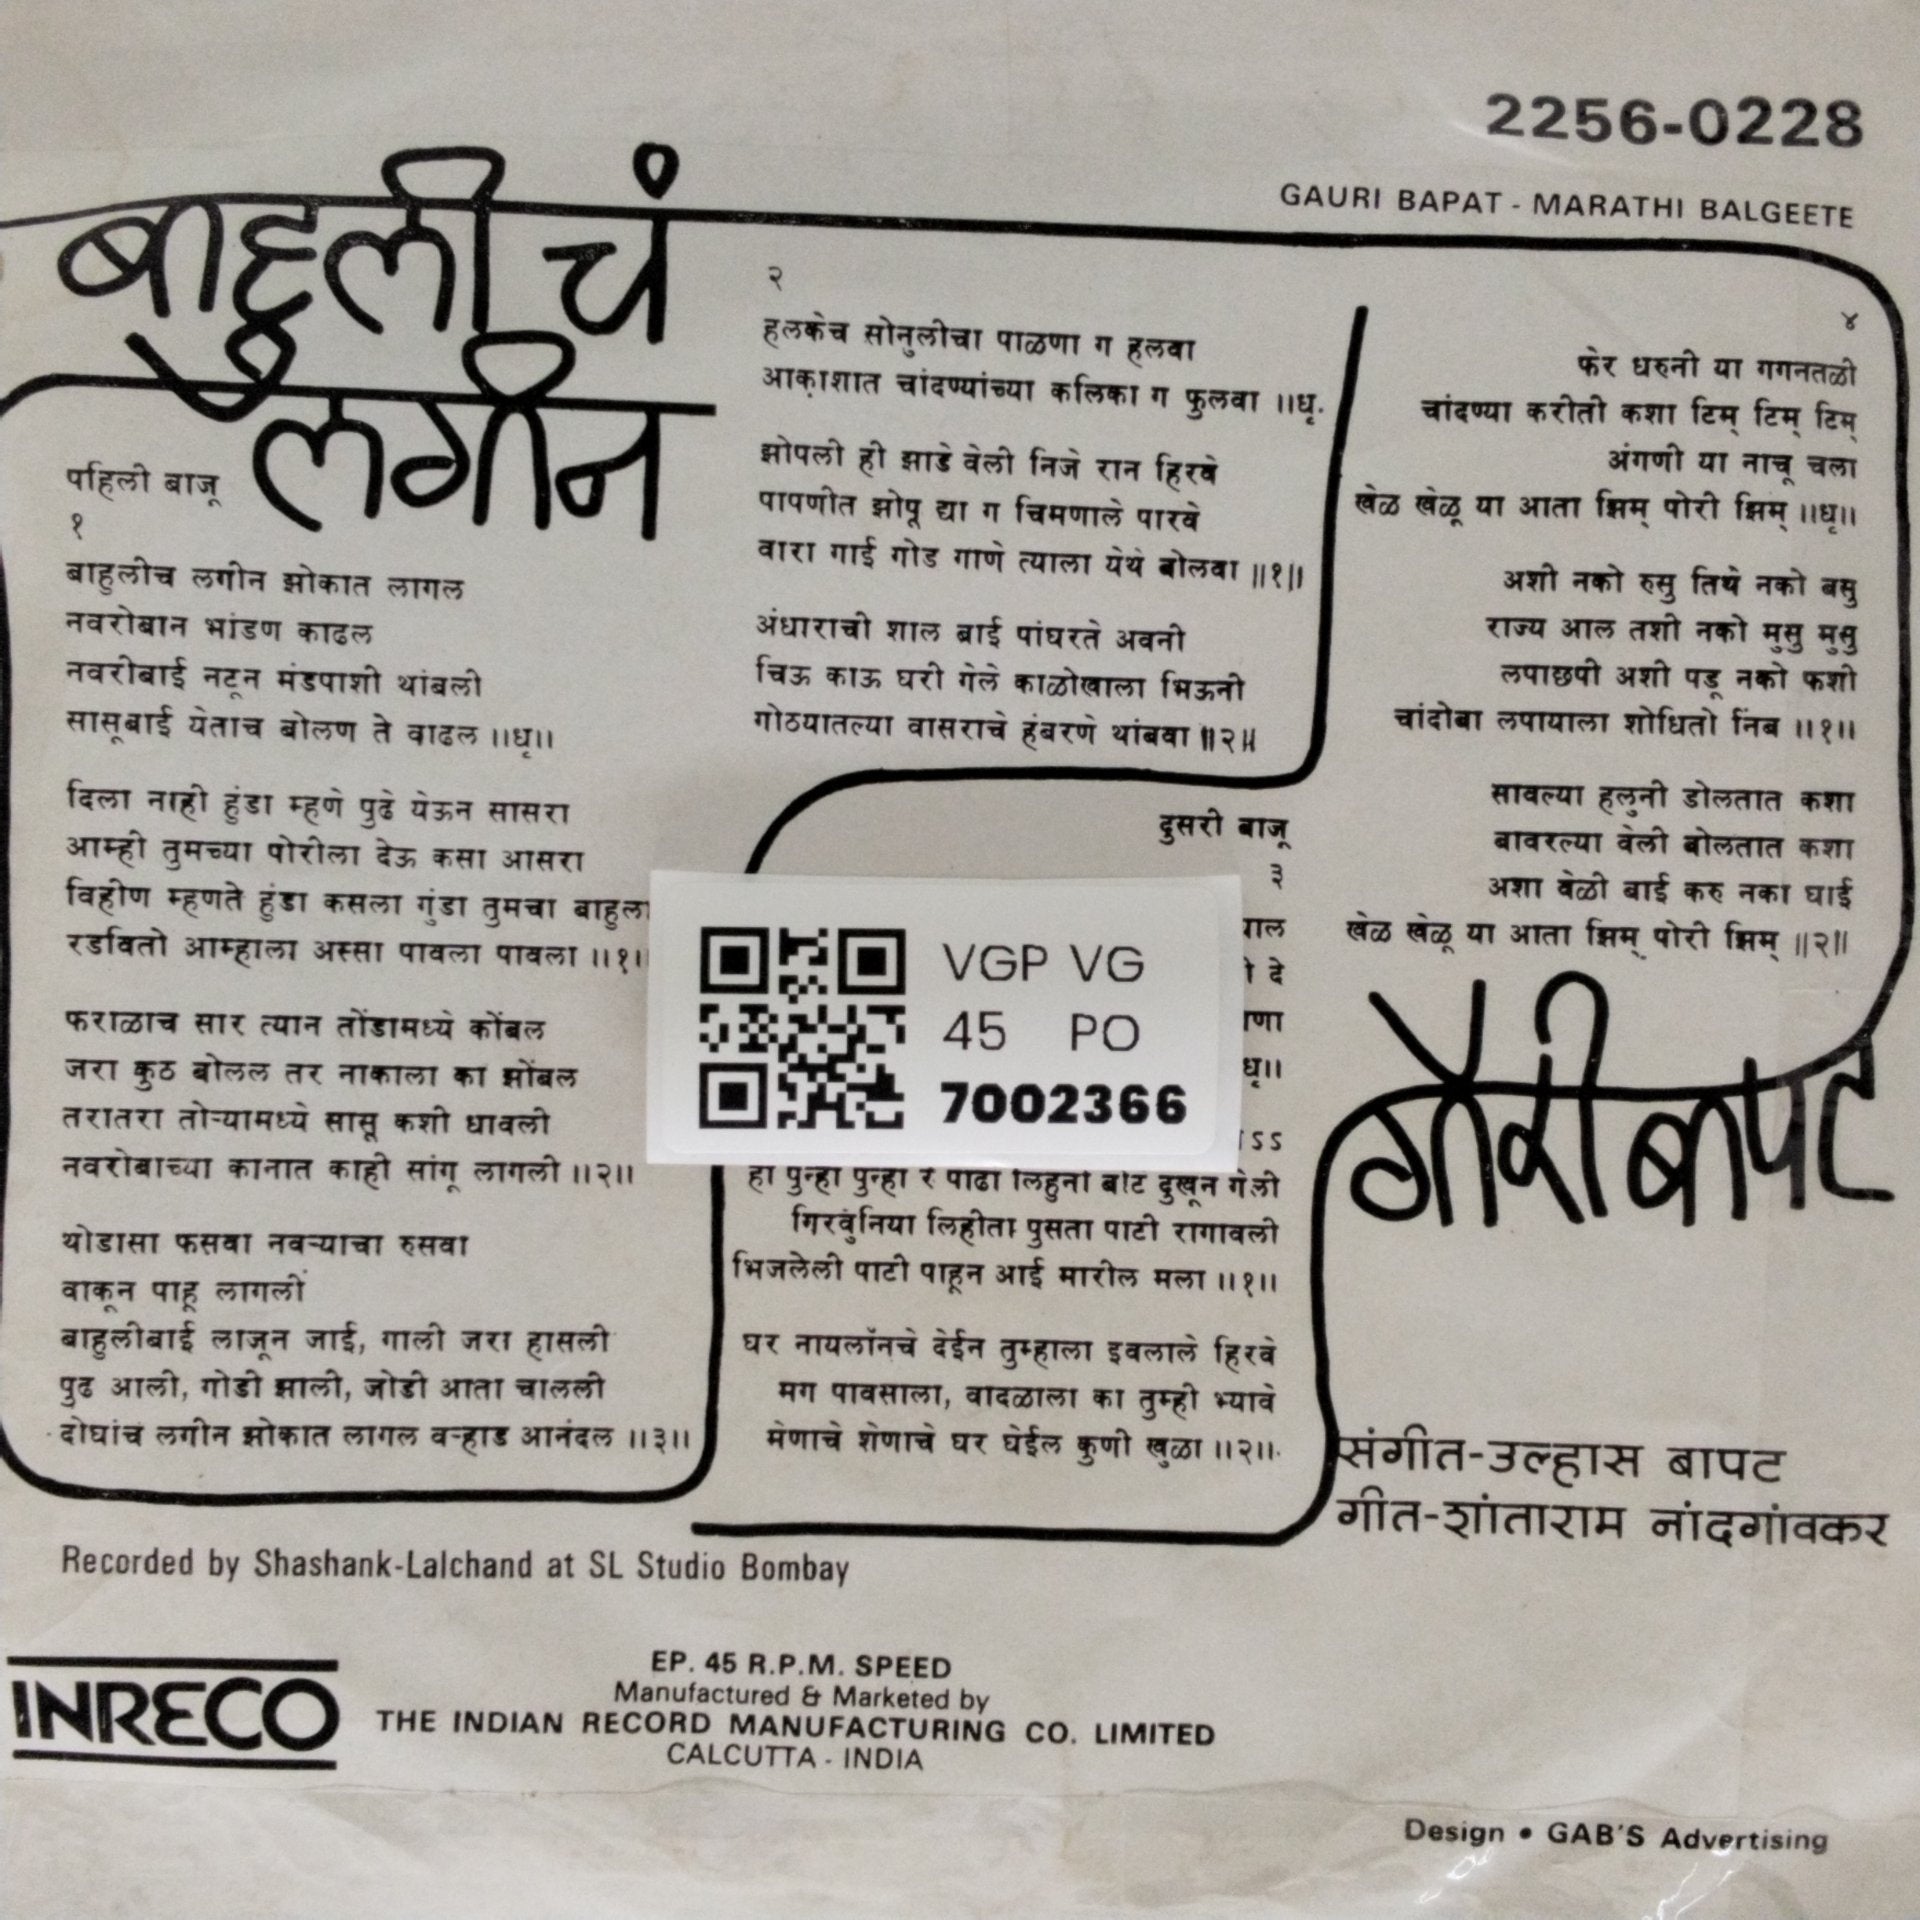 2256-0228
GAURI BAPAT - MARATHI BALGEETE
बाहुली चं
लगीन
पहिली बाजू
१
बाहुलीच लगीन झोकात लागल
नवरोबान भांडण काढल
नवरीबाई नटून मंडपाशी थांबली
सासूबाई येताच बोलण ते वाढल ।।धृ।।
दिला नाही हुंडा म्हणे पुढे येऊन सासरा
आम्ही तुमच्या पोरीला देऊ कसा आसरा
विहीण म्हणते हुंडा कसला गुंडा तुमचा बाहुला
रडवितो आम्हाला अस्सा पावला पावला ।।१।।
फराळाच सार त्यान तोंडामध्ये कोंबल
जरा कुठ बोलल तर नाकाला का झोंबल
तरातरा तोऱ्यामध्ये सासू कशी धावली
नवरोबाच्या कानात काही सांगू लागली ।।२।।
थोडासा फसवा नवऱ्याचा रुसवा
वाकून पाहू लागली
बाहुलीबाई लाजून जाई, गाली जरा हासली
पुढ आली, गोडी झाली, जोडी आता चालली
दोघांच लगीन झोकात लागल वऱ्हाड आनंदल ।।३।।
२
हलकेच सोनुलीचा पाळणा ग हलवा
आकाशात चांदण्यांच्या कलिका ग फुलवा ।।धृ.
झोपली ही झाडे वेली निजे रान हिरवे
पापणीत झोपू द्या ग चिमणाले पारवे
वारा गाई गोड गाणे त्याला येथे बोलवा ।।१।।
अंधाराची शाल बाई पांघरते अवनी
चिऊ काऊ घरी गेले काळोखाला भिऊनी
गोठयातल्या वासराचे हंबरणे थांबवा ।।२।।
दुसरी बाजू
३
दे
धृ।।
ऽऽ
हा पुन्हा पुन्हा रे पाढा लिहुनी बोट दुखून गेली
गिरवुंनिया लिहीता पुसता पाटी रागावली
भिजलेली पाटी पाहून आई मारील मला ।।१।।
घर नायलॉनचे देईन तुम्हाला इवलाले हिरवे
मग पावसाला, वादळाला का तुम्ही भ्यावे
मेणाचे शेणाचे घर घेईल कुणी खुळा ।।२।।
४
फेर धरुनी या गगनतळी
चांदण्या करीती कशा टिम् टिम् टिम्
अंगणी या नाचू चला
खेळ खेळू या आता झिम् पोरी झिम् ।।धृ।।
अशी नको रुसु तिथे नको बसु
राज्य आल तशी नको मुसु मुसु
लपाछपी अशी पडू नको फशी
चांदोबा लपायाला शोधितो निंब ।।१।।
सावल्या हलुनी डोलतात कशा
बावरल्या वेली बोलतात कशा
अशा वेळी बाई करु नका घाई
खेळ खेळू या आता झिम् पोरी झिम् ।।२।।
VGP VG
45 PO
7002366
गौरी बापट
संगीत-उल्हास बापट
गीत-शांताराम नांदगांवकर
Recorded by Shashank-Lalchand at SL Studio Bombay
INRECO
EP. 45 R.P.M. SPEED
Manufactured & Marketed by
THE INDIAN RECORD MANUFACTURING CO. LIMITED
CALCUTTA - INDIA
Design • GAB'S Advertising